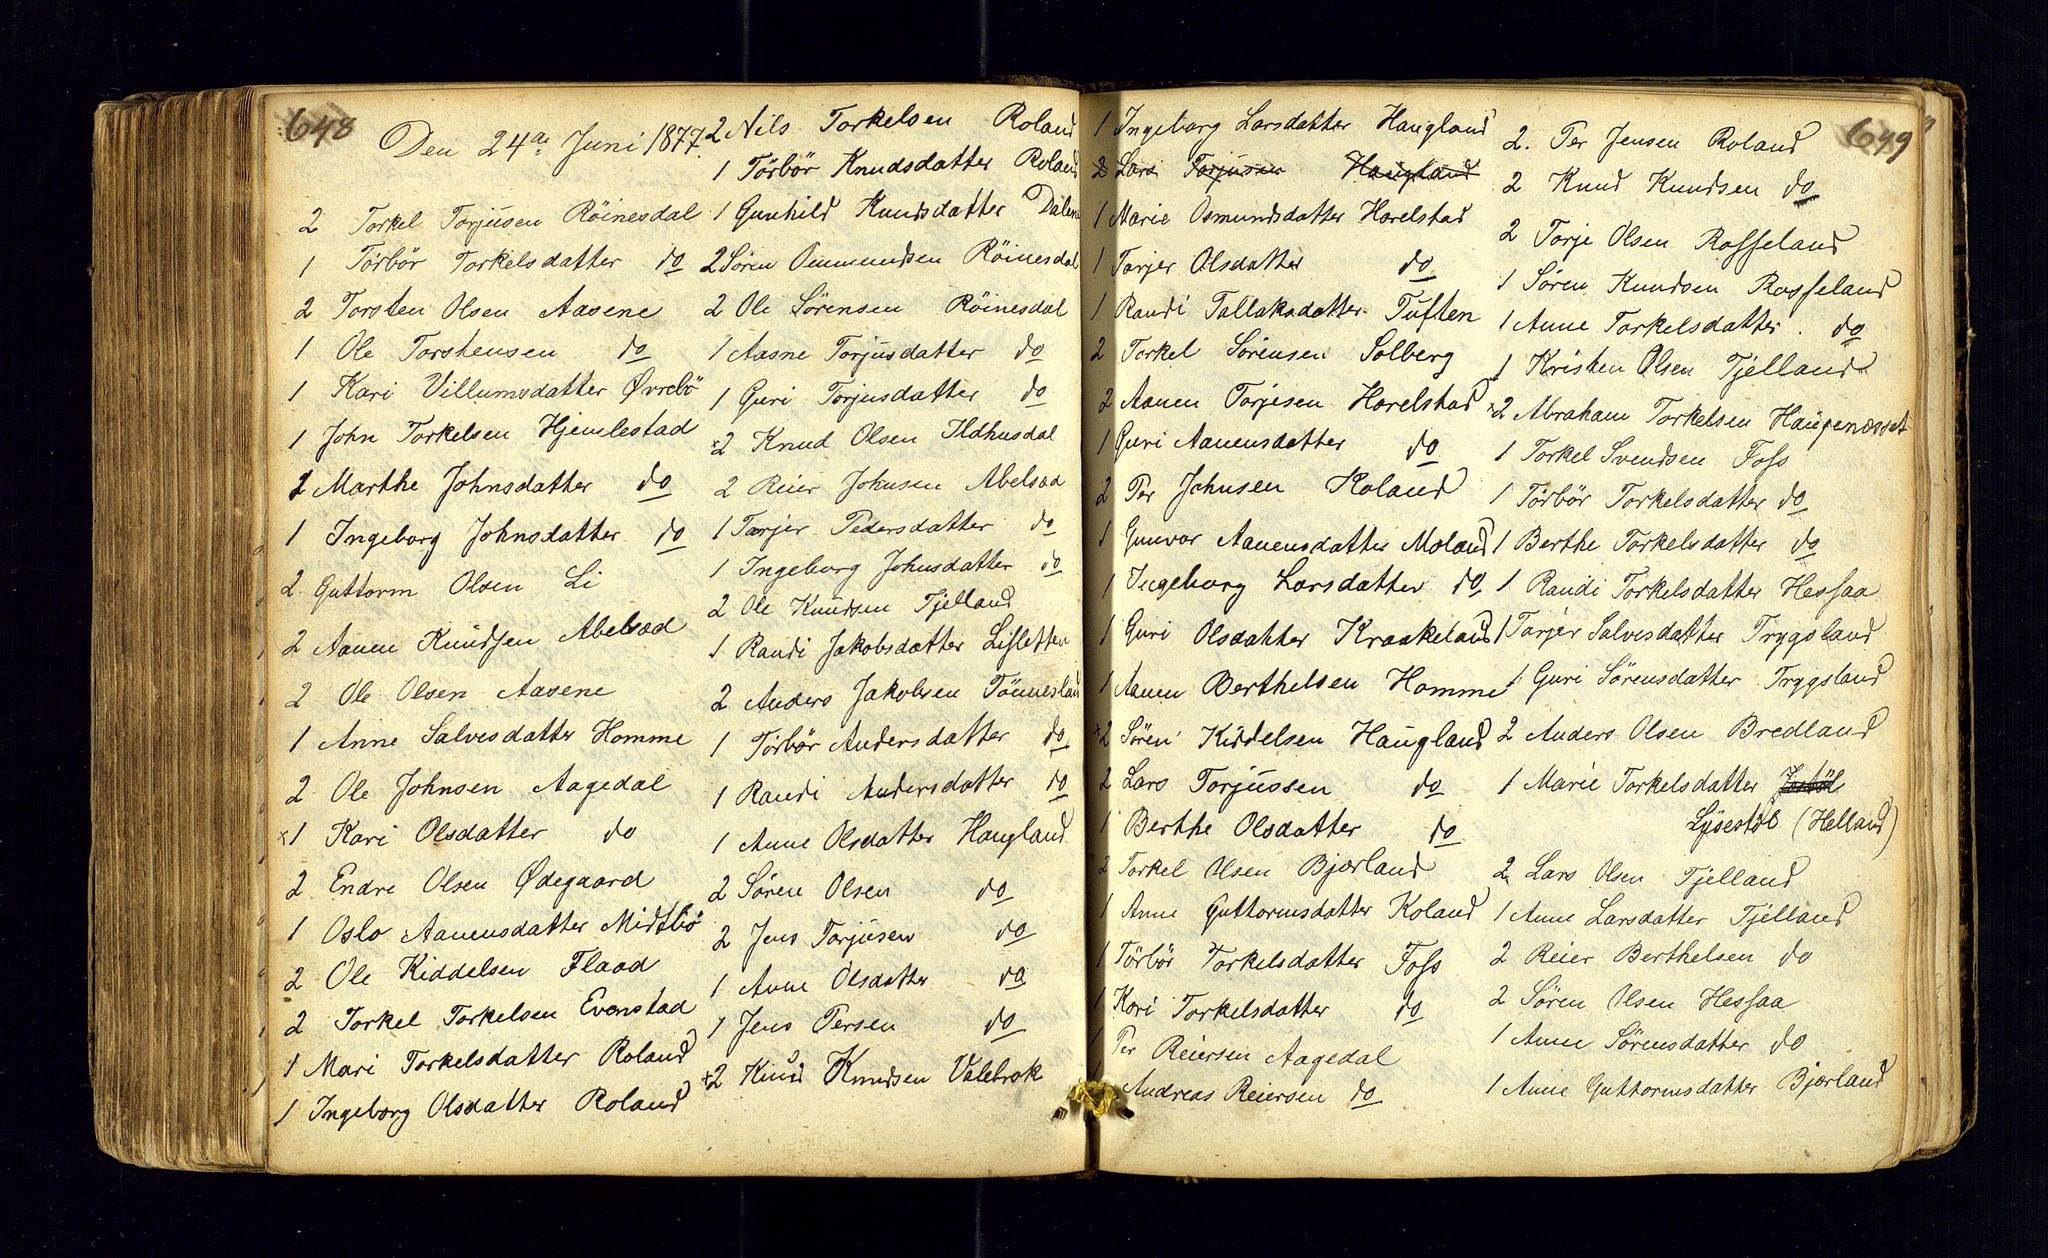 648
Den 24de Juni 1877.
2 Torkel Torjusen Röinesdal
1 Törbör Torkelsdatter do
2 Torsten Olsen Aasene
1 Ole Torstensen do
1 Kari Villumsdatter Øvrebö
1 John Torkelsen Hjemlestad
2 Marthe Johnsdatter do
1 Ingeborg Johnsdatter do
2 Guttorm Olsen Li
2 Aanen Knudsen Abelsæd
2 Ole Olsen Aasene
1 Anne Salvesdatter Homme
2 Ole Johnsen Aagedal
x1 Kari Olsdatter do
2 Endre Olsen Ødegaard
1 Oslo Aanensdatter Midtbö
2 Ole Kiddelsen Flaad
2 Torkel Torkelsen Evenstad
1 Mari Torkelsdatter Roland
1 Ingeborg Olsdatter Roland
2 Nils Torkelsen Roland
1 Törbör Knudsdatter Roland
1 Gunhild Knudsdatter Dalene
2 Sören Ommundsen Röinesdal
2 Ole Sörensen Röinesdal
1 Aasne Torjusdatter do
1 Guri Torjusdatter do
x2 Knud Olsen Ildhusdal
2 Reier Johnsen Abelsæd
1 Tarjer Pedersdatter do
1 Ingeborg Johnsdatter do
2 Ole Knudsen Tjelland
1 Randi Jakobsdatter Lisletten
2 Anders Jakobsen Tönnesland
1 Törbör Andersdatter do
1 Randi Andersdatter do
1 Anne Olsdatter Haugland
2 Sören Olsen do
2 Jens Torjusen do
1 Anne Olsdatter do
1 Jens Persen do
x2 Knud Knudsen Valebrok
1 Ingeborg Larsdatter Haugland
2 Lars Torjusen Haugland
1 Marie Osmundsdatter Horelstad
1 Tarjer Olsdatter do
1 Randi Tallaksdatter Tuften
2 Torkel Sörensen Solberg
2 Aanen Torjesen Horelstad
1 Guri Aanensdatter do
2 Per Johnsen Roland
1 Gunvor Aanensdatter Moland
1 Ingeborg Larsdatter do
1 Guri Olsdatter Kraakeland
1 Aanen Berthelsen Homme
x2 Sören Kiddelsen Haugland
2 Lars Torjussen do
1 Berthe Olsdatter do
2 Torkel Olsen Bjærland
1 Anne Guttormsdatter Roland
1 Törbör Torkelsdatter Foss
1 Kari Torkelsdatter do
1 Per Reiersen Aagedal
1 Andreas Reiersen do
649
2. Per Jensen Roland
2 Knud Knudsen do
2 Torje Olsen Rosseland
1 Sören Knudsen Rosseland
1 Anne Torkelsdatter do
1 Kristen Olsen Tjelland
x2 Abraham Torkelsen Haugenæsset
1 Torkel Svendsen Foss
1 Törbör Torkelsdatter do
1 Berthe Torkelsdatter do
1 Randi Torkelsdatter Hessaa
1 Tarjer Salvesdatter Trygsland
1 Guri Sörensdatter Trygsland
2 Anders Olsen Bredland
1 Marie Torkelsdatter
Lysestöl (Helland)
2 Lars Olsen Tjelland
1 Anne Larsdatter Tjelland
2 Reier Berthelsen do
2 Sören Olsen Hessaa
1 Anne Sörensdatter do
1 Anne Guttormsdatter Bjærland